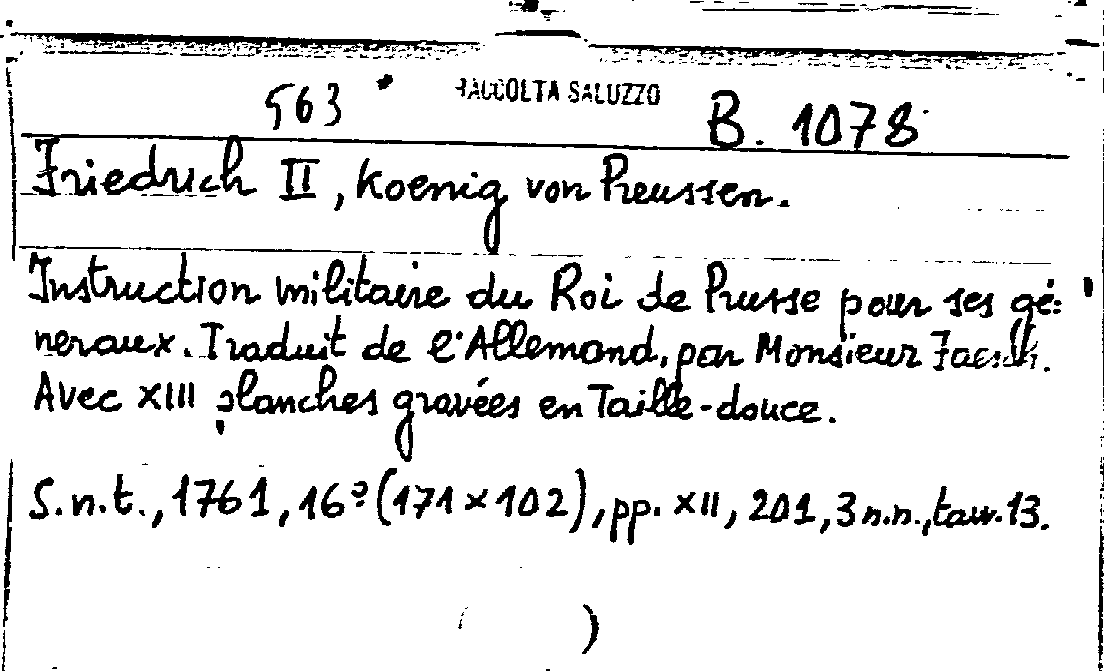 563 RACCOLTA SALUZZO B. 1078
Friedrich II, Koenig von Preussen.
Instruction militaire du Roi de Prusse pour ses gé=
neraux. Traduit de l'Allemand, par Monsieur Faesch.
Avec XIII planches gravées en Taille-douce.
S.n.t., 1761, 16º (171 x 102), pp. XII, 201, 3 n.n., tavv. 13.
( )